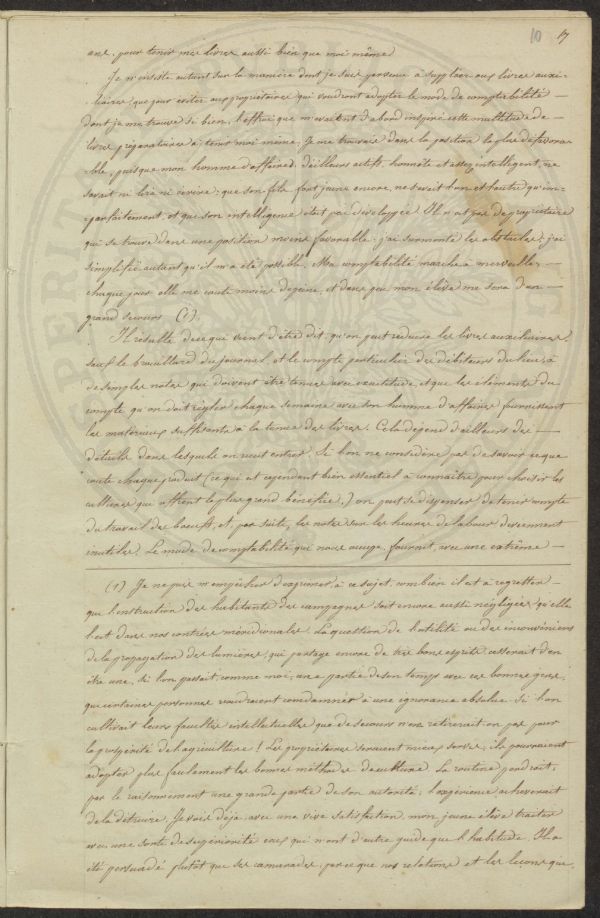 10 17
ans, pour tenir mes livres aussi bien que moi même
Je n'insiste autant sur la manière dont je suis parvenu à suppléer aux livres auxi-
liaires, que pour éviter aux propriétaires qui voudront adopter le mode de comptabilité
dont je me trouve si bien, l'effroi que m'avaient d'abord inspiré cette multitude de
livres préparatoires à tenir moi même. Je me trouvais dans la position la plus défavora-
ble, puisque mon homme d'affaires, d'ailleurs actif, honnête et assez intelligent, ne
savait ni lire ni écrire; que son fils fort jeune encore, ne savait l'un et l'autre qu'im-
parfaitement, et que son intelligence était peu développée. Il n'est pas de propriétaire
qui se trouve dans une position moins favorable; j'ai surmonté les obstacles; j'ai
simplifié autant qu'il m'a été possible. Ma comptabilité marche à merveille,
chaque jour elle me coute moins de peine, et dans peu mon élève me sera d'un
grand secours (1).
Il résulte de ce que vient d'être dit, qu'on peut réduire les livres auxiliaires,
sauf le brouillard du journal et le compte particulier des débiteurs du lieu, à
de simples notes qui doivent être tenues avec exactitude, et que les éléments du
compte qu'on doit régler chaque semaine avec son homme d'affaires fournissent
les matériaux suffisants à la tenue des livres. Cela dépend d'ailleurs des
détails dans lesquels on veut entrer. Si l'on ne considère pas de savoir ce que
coute chaque produit (ce qui est cependant bien essentiel à connaître pour choisir les
cultures qui offrent le plus grand bénéfice,) on peut se dispenser de tenir compte
du travail des boeufs, et, par suite, les notes sur les heures de labour deviennent
inutiles. Le mode de comptabilité qui nous occupe, fournit, avec une extrême
(1) Je ne puis m'empêcher d'exprimer, à ce sujet, combien il est à regretter
que l'instruction des habitants des campagnes soit encore aussi négligée qu'elle
l'est dans nos contrées méridionales. La question de l'utilité ou des inconvéniens
de la propagation des lumières, qui partage encore de très bons esprits cesserait d'en
être une, si l'on passait, comme moi, une partie de son temps avec ces bonnes gens,
que certaines personnes voudraient condamner à une ignorance absolue. Si l'on
cultivait leurs facultés intellectuelles que de secours n'en retirerait on pas pour
la prospérité de l'agriculture! Les propriétaires seraient mieux servis, ils pourraient
adopter plus facilement les bonnes méthodes de culture. La routine perdrait,
par le raisonnement une grande partie de son autorité; l'expérience acheverait
de la détruire. Je vois déjà, avec une vive satisfaction, mon jeune élève traiter
avec une sorte de supériorité ceux qui n'ont d'autre guide que l'habitude. Il a
été persuadé plutôt que ses camarades, parce que nos relations et les leçons que